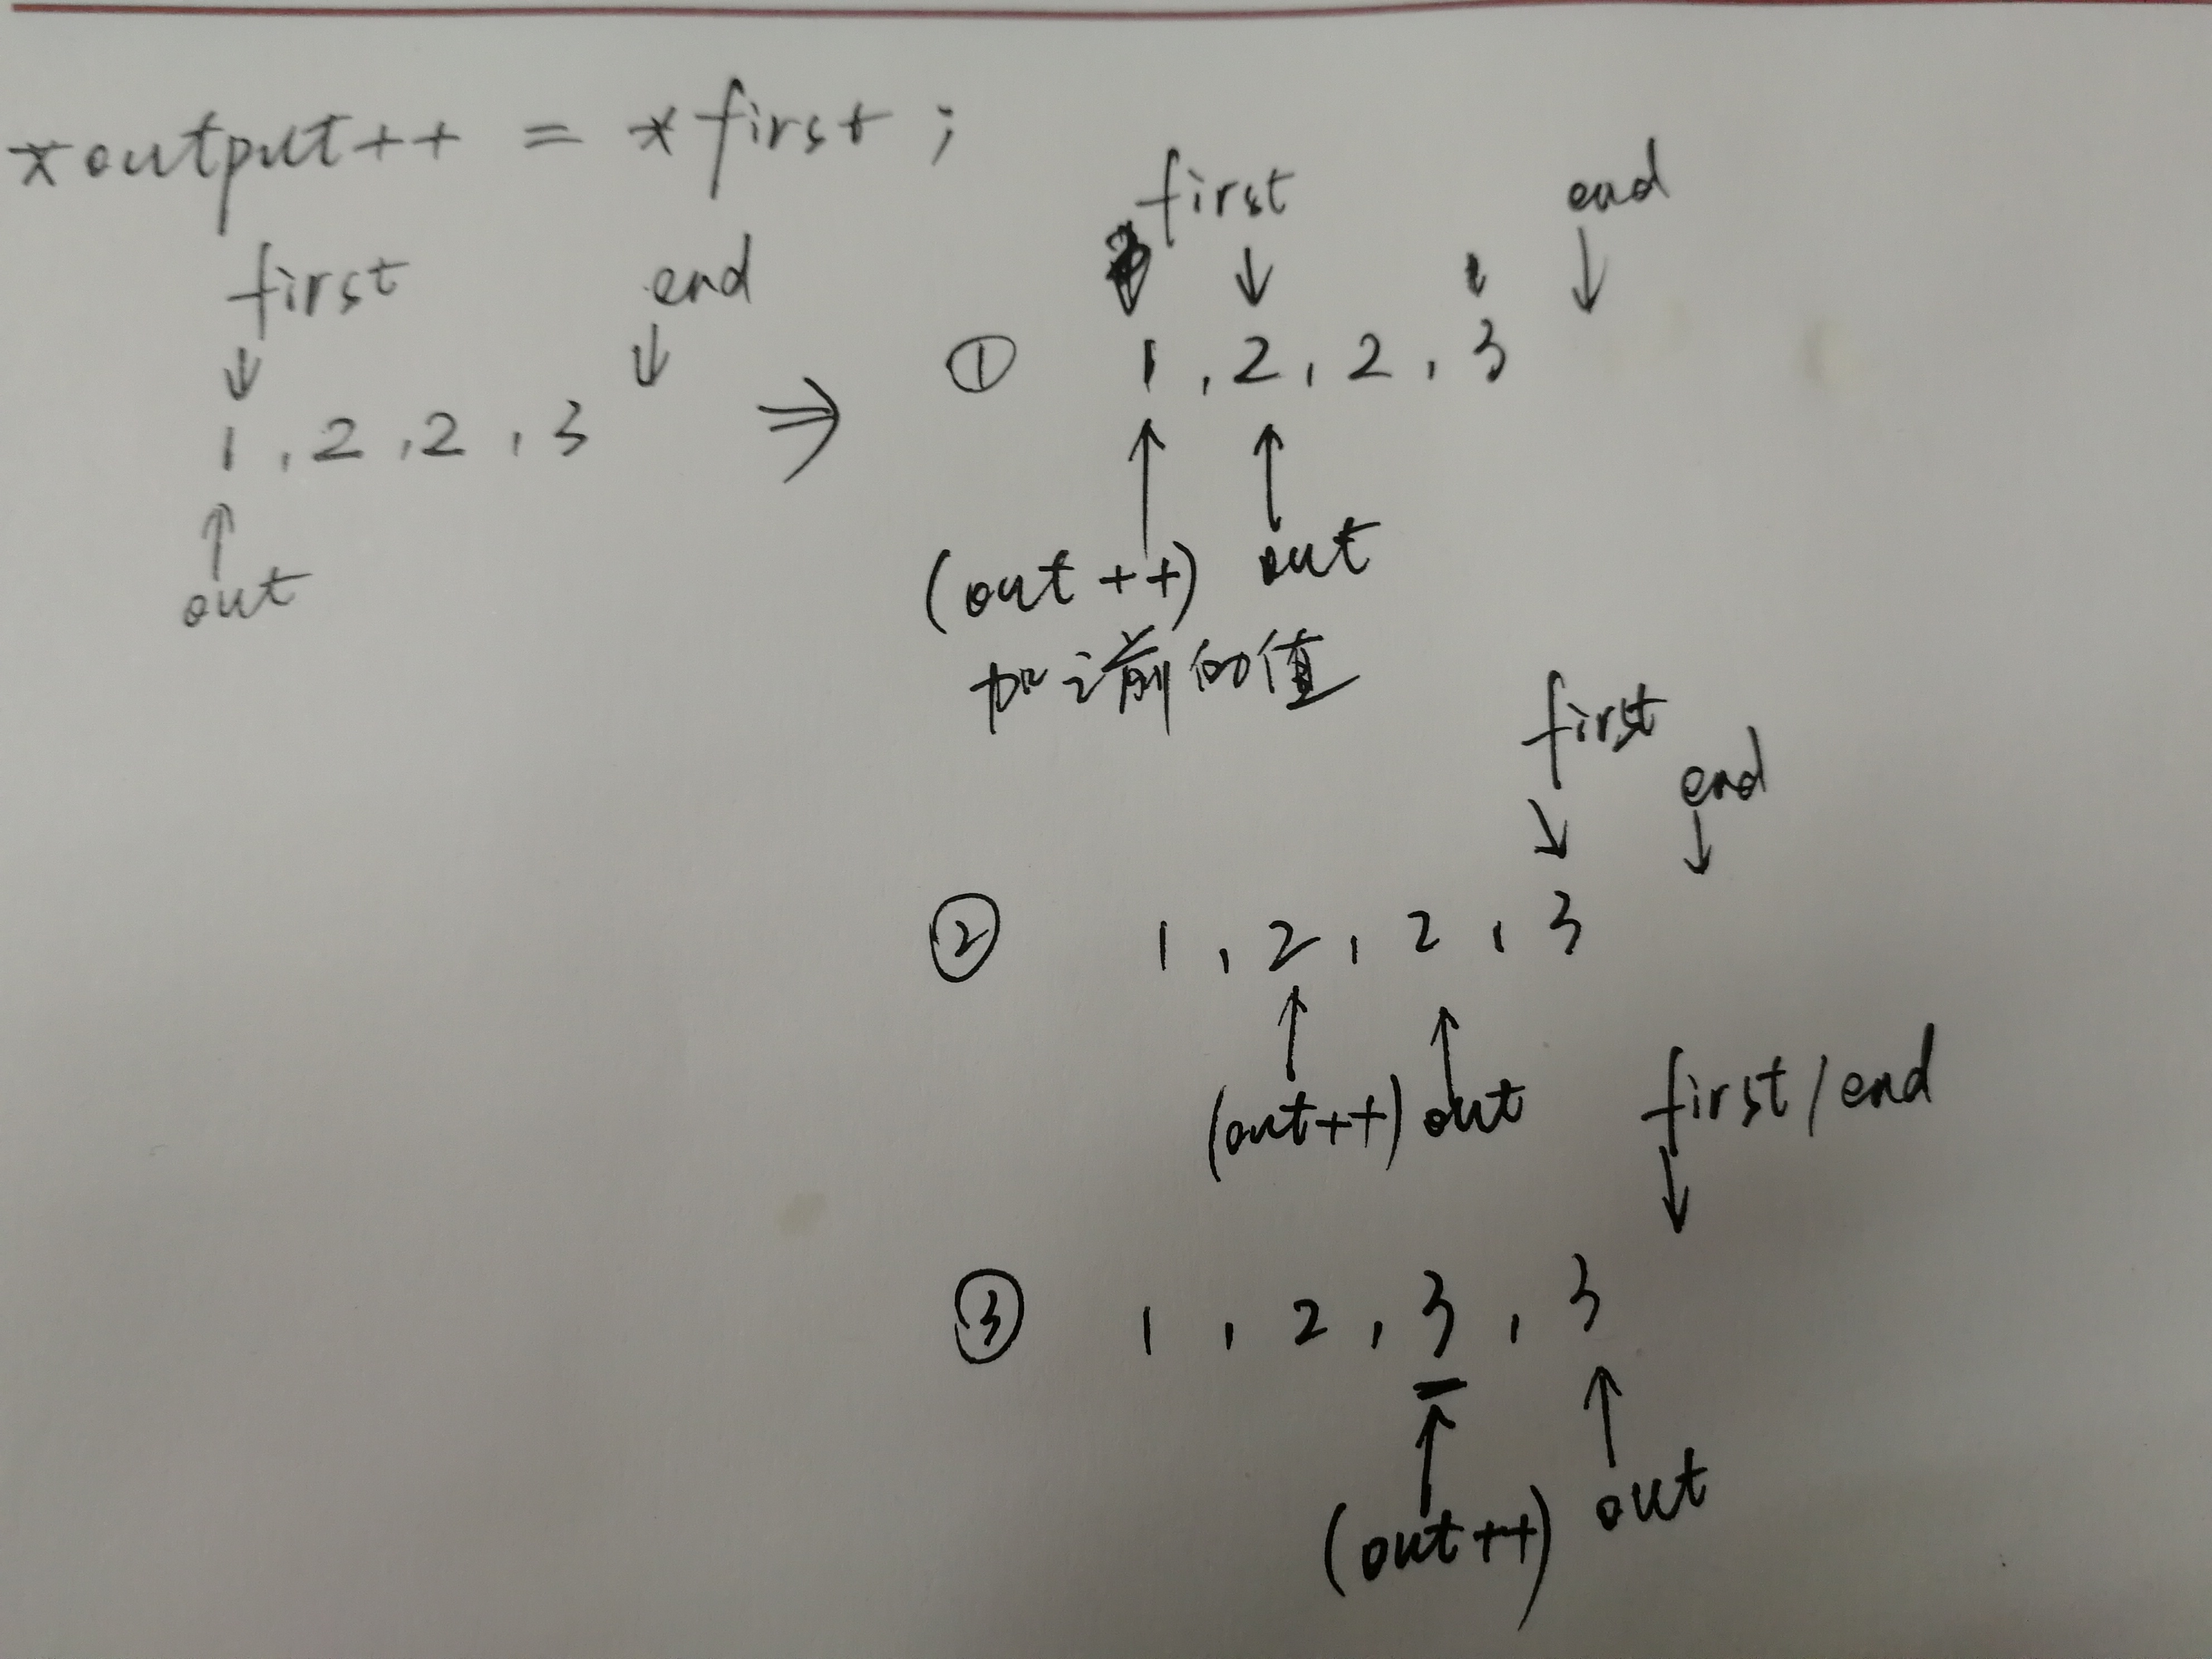 *output++ = *first;
first end
1,2,2,3
out
⇒
first end
① 1,2,2,3
(out++) out
加之前的值
first
end
② 1,2,2,3
(out++) out
first/end
③ 1,2,3,3
(out++) out